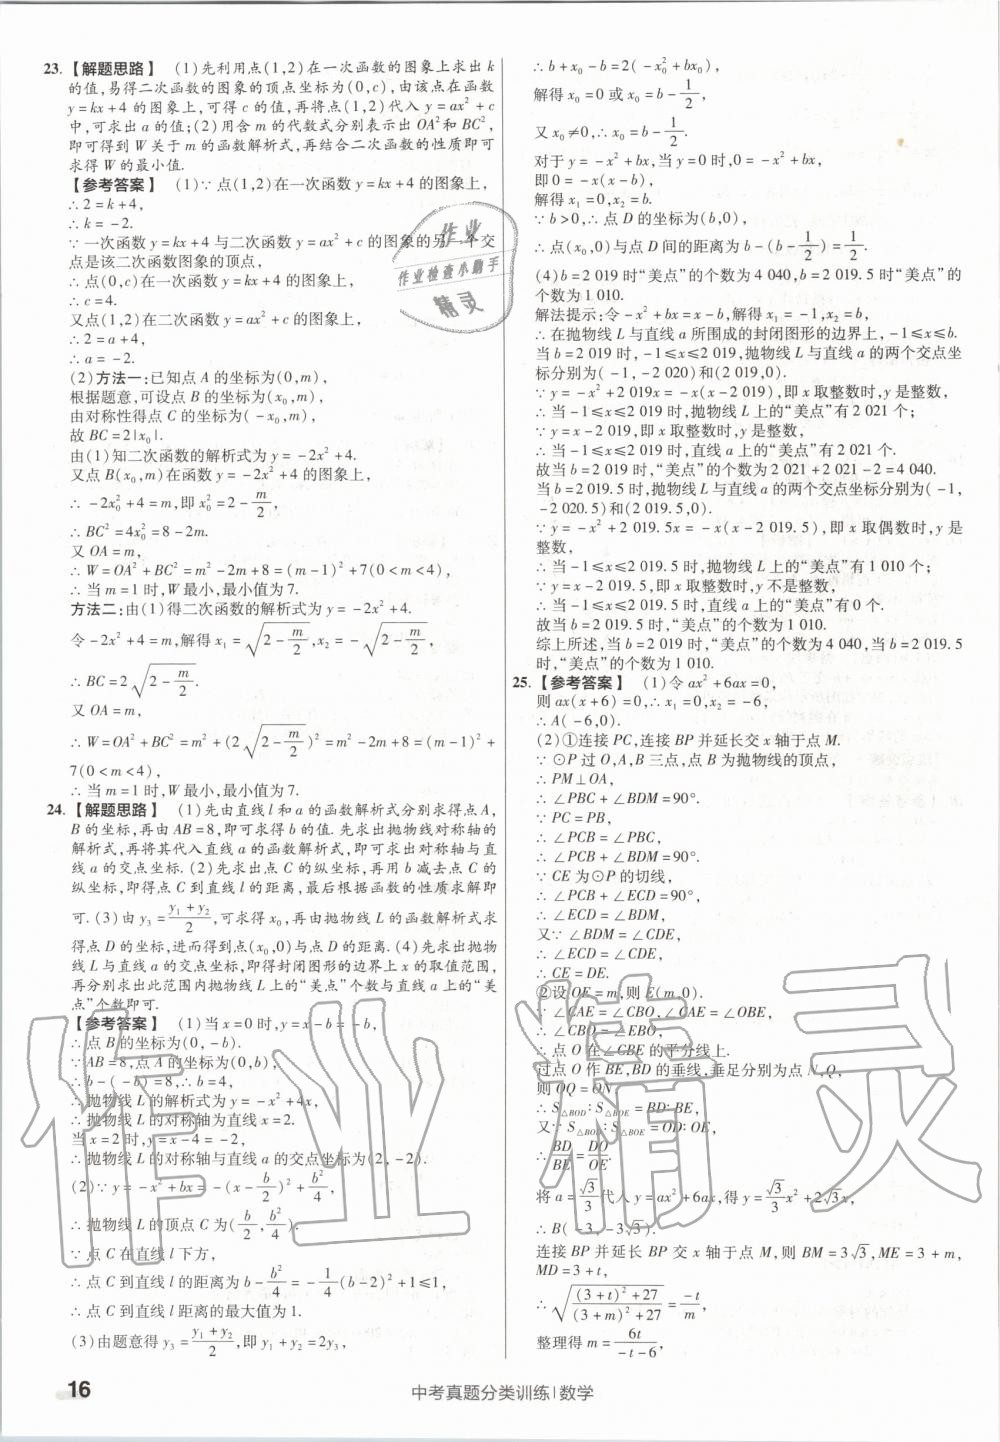 23.【解题思路】 (1)先利用点(1,2)在一次函数的图象上求出 k
的值,易得二次函数的图象的顶点坐标为(0,c),由该点在函数
y=kx+4 的图象上,可得 c 的值,再将点(1,2)代入 y=ax²+c
中,可求出 a 的值;(2)用含 m 的代数式分别表示出 OA²和 BC²,
即可得到 W 关于 m 的函数解析式,再结合二次函数的性质即可
求得 W 的最小值.
【参考答案】 (1)∵ 点(1,2)在一次函数 y=kx+4 的图象上,
∴ 2=k+4,
∴ k=-2.
∵ 一次函数 y=kx+4 与二次函数 y=ax²+c 的图象的另一个交
点是该二次函数图象的顶点,
∴ 点(0,c)在一次函数 y=kx+4 的图象上,
∴ c=4.
又点(1,2)在二次函数 y=ax²+c 的图象上,
∴ 2=a+4,
∴ a=-2.
(2)方法一:已知点 A 的坐标为(0,m),
根据题意,可设点 B 的坐标为(x₀,m),
由对称性得点 C 的坐标为(-x₀,m),
故 BC=2|x₀|.
由(1)知二次函数的解析式为 y=-2x²+4.
又点 B(x₀,m)在函数 y=-2x²+4 的图象上,
∴ -2x₀²+4=m,即 x₀²=2-m/2,
∴ BC²=4x₀²=8-2m.
又 OA=m,
∴ W=OA²+BC²=m²-2m+8=(m-1)²+7(0<m<4),
∴ 当 m=1 时,W 最小,最小值为 7.
方法二:由(1)得二次函数的解析式为 y=-2x²+4.
令-2x²+4=m,解得 x₁=√(2-m/2),x₂=-√(2-m/2),
∴ BC=2√(2-m/2).
又 OA=m,
∴ W=OA²+BC²=m²+(2√(2-m/2))²=m²-2m+8=(m-1)²+
7(0<m<4),
∴ 当 m=1 时,W 最小,最小值为 7.
24.【解题思路】 (1)先由直线 l 和 a 的函数解析式分别求得点 A,
B 的坐标,再由 AB=8,即可求得 b 的值.先求出抛物线对称轴的
解析式,再将其代入直线 a 的函数解析式,即可求出对称轴与直
线 a 的交点坐标.(2)先求出点 C 的纵坐标,再用 b 减去点 C 的
纵坐标,即得点 C 到直线 l 的距离,最后根据函数的性质求解即
可.(3)由 y₃=(y₁+y₂)/2,可求得 x₀,再由抛物线 L 的函数解析式求
得点 D 的坐标,进而得到点(x₀,0)与点 D 的距离.(4)先求出抛物
线 L 与直线 a 的交点坐标,即得封闭图形的边界上 x 的取值范围,
再分别求出此范围内抛物线 L 上的“美点”个数与直线 a 上的“美
点”个数即可.
【参考答案】 (1)当 x=0 时,y=x-b=-b,
∴ 点 B 的坐标为(0,-b).
∵AB=8,点 A 的坐标为(0,b),
∴ b-(-b)=8,∴ b=4,
∴ 抛物线 L 的解析式为 y=-x²+4x,
∴ 抛物线 L 的对称轴为直线 x=2.
当 x=2 时,y=x-4=-2,
∴ 抛物线 L 的对称轴与直线 a 的交点坐标为(2,-2).
(2)∵ y=-x²+bx=-(x-b/2)²+b²/4,
∴ 抛物线 L 的顶点 C 为(b/2,b²/4).
∵ 点 C 在直线 l 下方,
∴ 点 C 到直线 l 的距离为 b-b²/4=-1/4(b-2)²+1≤1,
∴ 点 C 到直线 l 距离的最大值为 1.
(3)由题意得 y₃=(y₁+y₂)/2,即 y₁+y₂=2y₃,
∴ b+x₀-b=2(-x₀²+bx₀),
解得 x₀=0 或 x₀=b-1/2,
又 x₀≠0,∴ x₀=b-1/2.
对于 y=-x²+bx,当 y=0 时,0=-x²+bx,
即 0=-x(x-b),
解得 x₁=0,x₂=b.
∵ b>0,∴ 点 D 的坐标为(b,0),
∴ 点(x₀,0)与点 D 间的距离为 b-(b-1/2)=1/2.
(4)b=2 019 时“美点”的个数为 4 040,b=2 019.5 时“美点”的
个数为 1 010.
解法提示:令-x²+bx=x-b,解得 x₁=-1,x₂=b,
∴ 在抛物线 L 与直线 a 所围成的封闭图形的边界上,-1≤x≤b.
当 b=2 019 时,-1≤x≤2 019,抛物线 L 与直线 a 的两个交点坐
标分别为(-1,-2 020)和(2 019,0).
∵ y=-x²+2 019x=-x(x-2 019),即 x 取整数时,y 是整数,
∴ 当-1≤x≤2 019 时,抛物线 L 上的“美点”有 2 021 个;
∵ y=x-2 019,即 x 取整数时,y 是整数,
∴ 当-1≤x≤2 019 时,直线 a 上的“美点”有 2 021 个.
故当 b=2 019 时,“美点”的个数为 2 021+2 021-2=4 040.
当 b=2 019.5 时,抛物线 L 与直线 a 的两个交点坐标分别为(-1,
-2 020.5)和(2 019.5,0).
∵ y=-x²+2 019.5x=-x(x-2 019.5),即 x 取偶数时,y 是
整数,
∴ 当-1≤x≤2 019.5 时,抛物线 L 上的“美点”有 1 010 个;
∵ y=x-2 019.5,即 x 取整数时,y 不是整数,
∴ 当-1≤x≤2 019.5 时,直线 a 上的“美点”有 0 个.
故当 b=2 019.5 时,“美点”的个数为 1 010.
综上所述,当 b=2 019 时,“美点”的个数为 4 040,当 b=2 019.5
时,“美点”的个数为 1 010.
25.【参考答案】 (1)令 ax²+6ax=0,
则 ax(x+6)=0,∴ x₁=0,x₂=-6,
∴ A(-6,0).
(2)①连接 PC,连接 BP 并延长交 x 轴于点 M.
∵ ⊙P 过 O,A,B 三点,点 B 为抛物线的顶点,
∴ PM⊥OA,
∴ ∠PBD+∠BDM=90°.
∵ PC=PB,
∴ ∠PCB=∠PBC,
∴ ∠PCB+∠BDM=90°.
∵ CE 为⊙P 的切线,
∴ ∠PCB+∠ECD=90°,
∴ ∠ECD=∠BDM,
又∵ ∠BDM=∠CDE,
∴ ∠ECD=∠CDE,
∴ CE=DE.
②设 OE=m,则 E(m,0).
∵ ∠CAE=∠CBO,∠CAE=∠OBE,
∴ ∠CBO=∠EBO,
∴ 点 O 在∠CBE 的平分线上.
过点 O 作 BE,BD 的垂线,垂足分别为点 N,Q,
则 OQ=ON.
∴ S△BOD:S△BOE=BD:BE,
又∵ S△BOD:S△BOE=OD:OE,
∴ BD/BE=DO/OE.
将 a=√3/3代入 y=ax²+6ax,得 y=√3/3x²+2√3x,
∴ B(-3,-3√3).
连接 BP 并延长 BP 交 x 轴于点 M,则 BM=3√3,ME=3+m,
MD=3+t,
∴ √(((3+t)²+27)/((3+m)²+27))=-t/m,
整理得 m=6t/(-t-6),
16
中考真题分类训练|数学
作业
作业检查小助手
精灵
作业精灵